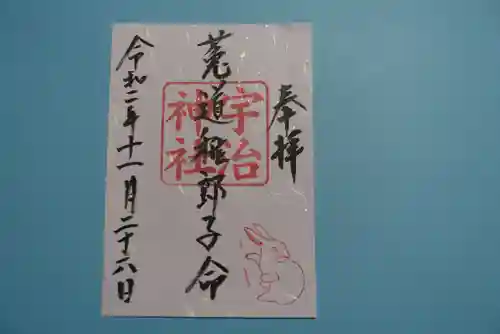 奉拝
宇治
神社
菟道稚郎子命
令和二年十一月二十六日